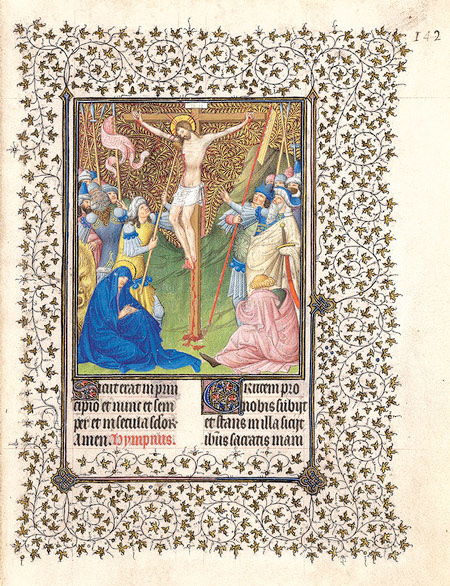 142
Sicut erat in prin
cipio et nunc et sem
per et in secula sclor̄
amen. Hympnus.
Crucem pro
nobis subijt
et stans in illa sicijt
ih̄us sacratis mani